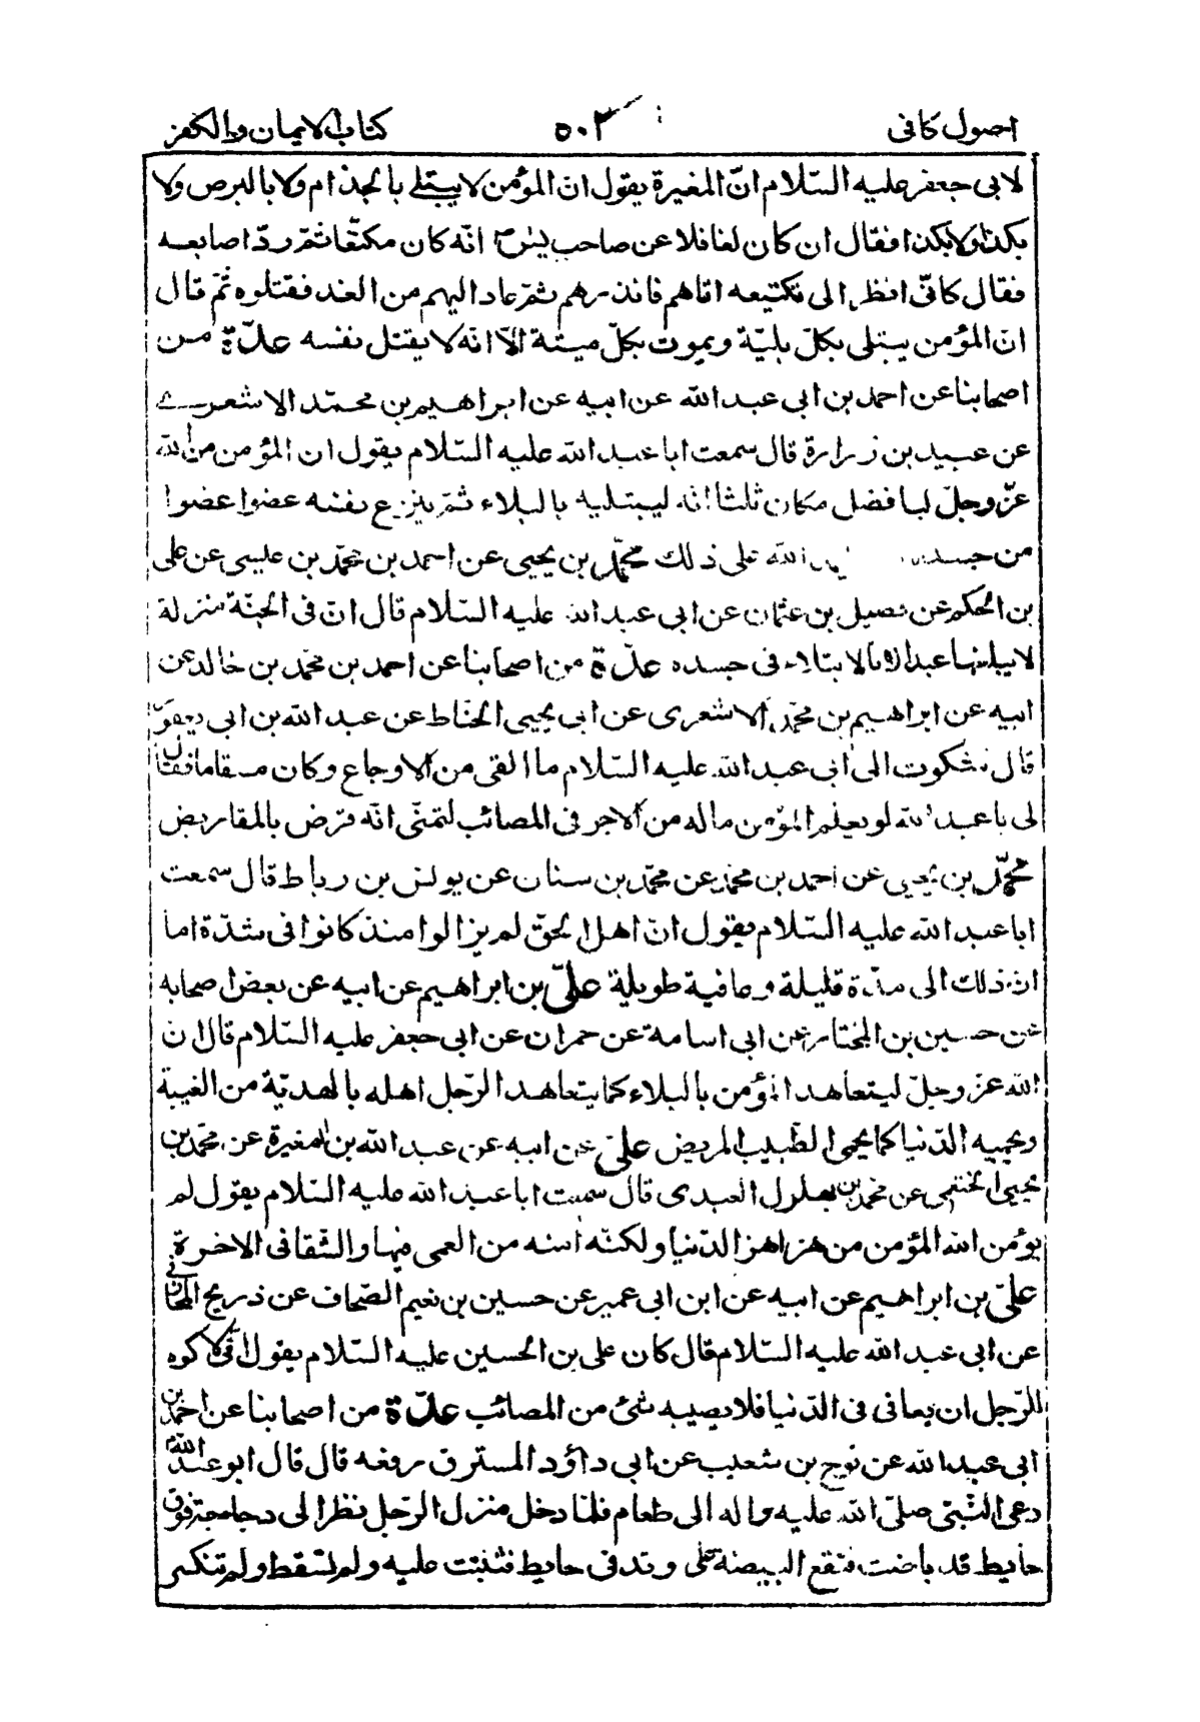 اصول كافى ٥٠٢ كتاب الايمان والكفر
لابى جعفر عليه السّلام انّ المغيرة يقول ان المؤمن لا يبتلى بالجذام ولا بالبرص ولا
بكذا ولا بكذا فقال ان كان لغافلا عن صاحب يسٓ انّه كان مكنّعا ثمّ ردّ اصابعه
فقال كانّى انظر الى تكنيعه اتاهم فانذرهم ثمّ عاد اليهم من الغد فقتلوه ثمّ قال
انّ المؤمن يبتلى بكلّ بليّة ويموت بكلّ ميتة الّا انّه لا يقتل نفسه عدّة من
اصحابنا عن احمد بن ابى عبد اللّه عن ابيه عن ابراهيم بن محمّد الاشعرى
عن عبيد بن زرارة قال سمعت ابا عبد اللّه عليه السّلام يقول ان المؤمن من اللّه
عزّ وجلّ لبافضل مكان ثلثا انه ليبتليه بالبلاء ثمّ ينزع نفسه عضوا عضوا
من جسده اللّه على ذلك محمّد بن يحيى عن احمد بن محمّد بن عيسى عن على
بن الحكم عن فضيل بن عثمان عن ابى عبد اللّه عليه السّلام قال انّ فى الجنّة منزلة
لا يبلغها عبد الا بالابتلاء فى جسده عدّة من اصحابنا عن احمد بن محمّد بن خالد عن
ابيه عن ابراهيم بن محمّد الاشعرى عن ابى يحيى الحنّاط عن عبد اللّه بن ابى يعفور
قال شكوت الى ابى عبد اللّه عليه السّلام ما القى من الاوجاع وكان مسقاما فقال
لى يا عبد اللّه لو يعلم المؤمن ماله من الاجر فى المصائب لتمنّى انّه قرض بالمقاريض
محمّد بن يحيى عن احمد بن محمّد عن محمّد بن سنان عن يونس بن رباط قال سمعت
ابا عبد اللّه عليه السّلام يقول انّ اهل الحق لم يزالوا منذ كانوا فى شدّة اما
ان ذلك الى مدّة قليلة وعافية طويلة علىّ بن ابراهيم عن ابيه عن بعض اصحابه
عن حسين بن المختار عن ابى اسامة عن حمران عن ابى جعفر عليه السّلام قال ان
اللّه عزّ وجلّ ليتعاهد المؤمن بالبلاء كما يتعاهد الرّجل اهله بالهديّة من الغيبة
ويحميه الدّنيا كما يحمى الطّبيب المريض علىّ عن ابيه عن عبد اللّه بن المغيرة عن محمّد بن
يحيى الخثعمى عن محمّد بن بهلول العبدى قال سمعت ابا عبد اللّه عليه السّلام يقول لم
يؤمن اللّه المؤمن من هزاهز الدّنيا ولكنّه امنه من العمى فيها والشّقا فى الاخرة
علىّ بن ابراهيم عن ابيه عن ابن ابى عمير عن حسين بن نعيم الصّحاف عن ذريح المحاربى
عن ابى عبد اللّه عليه السّلام قال كان على بن الحسين عليه السّلام يقول انّى لاكره
للرّجل ان يعافى فى الدّنيا فلا يصيبه شىء من المصائب عدّة من اصحابنا عن احمد بن
ابى عبد اللّه عن نوح بن شعيب عن ابى داؤد المسترق رفعه قال قال ابو عبد اللّه
دعى النّبىّ صلّى اللّه عليه واله الى طعام فلمّا دخل منزل الرّجل نظر الى دجاجة فوق
حايط قد باضت فتقع البيضة على وتد فى حايط فثبتت عليه ولم تسقط ولم تنكسر